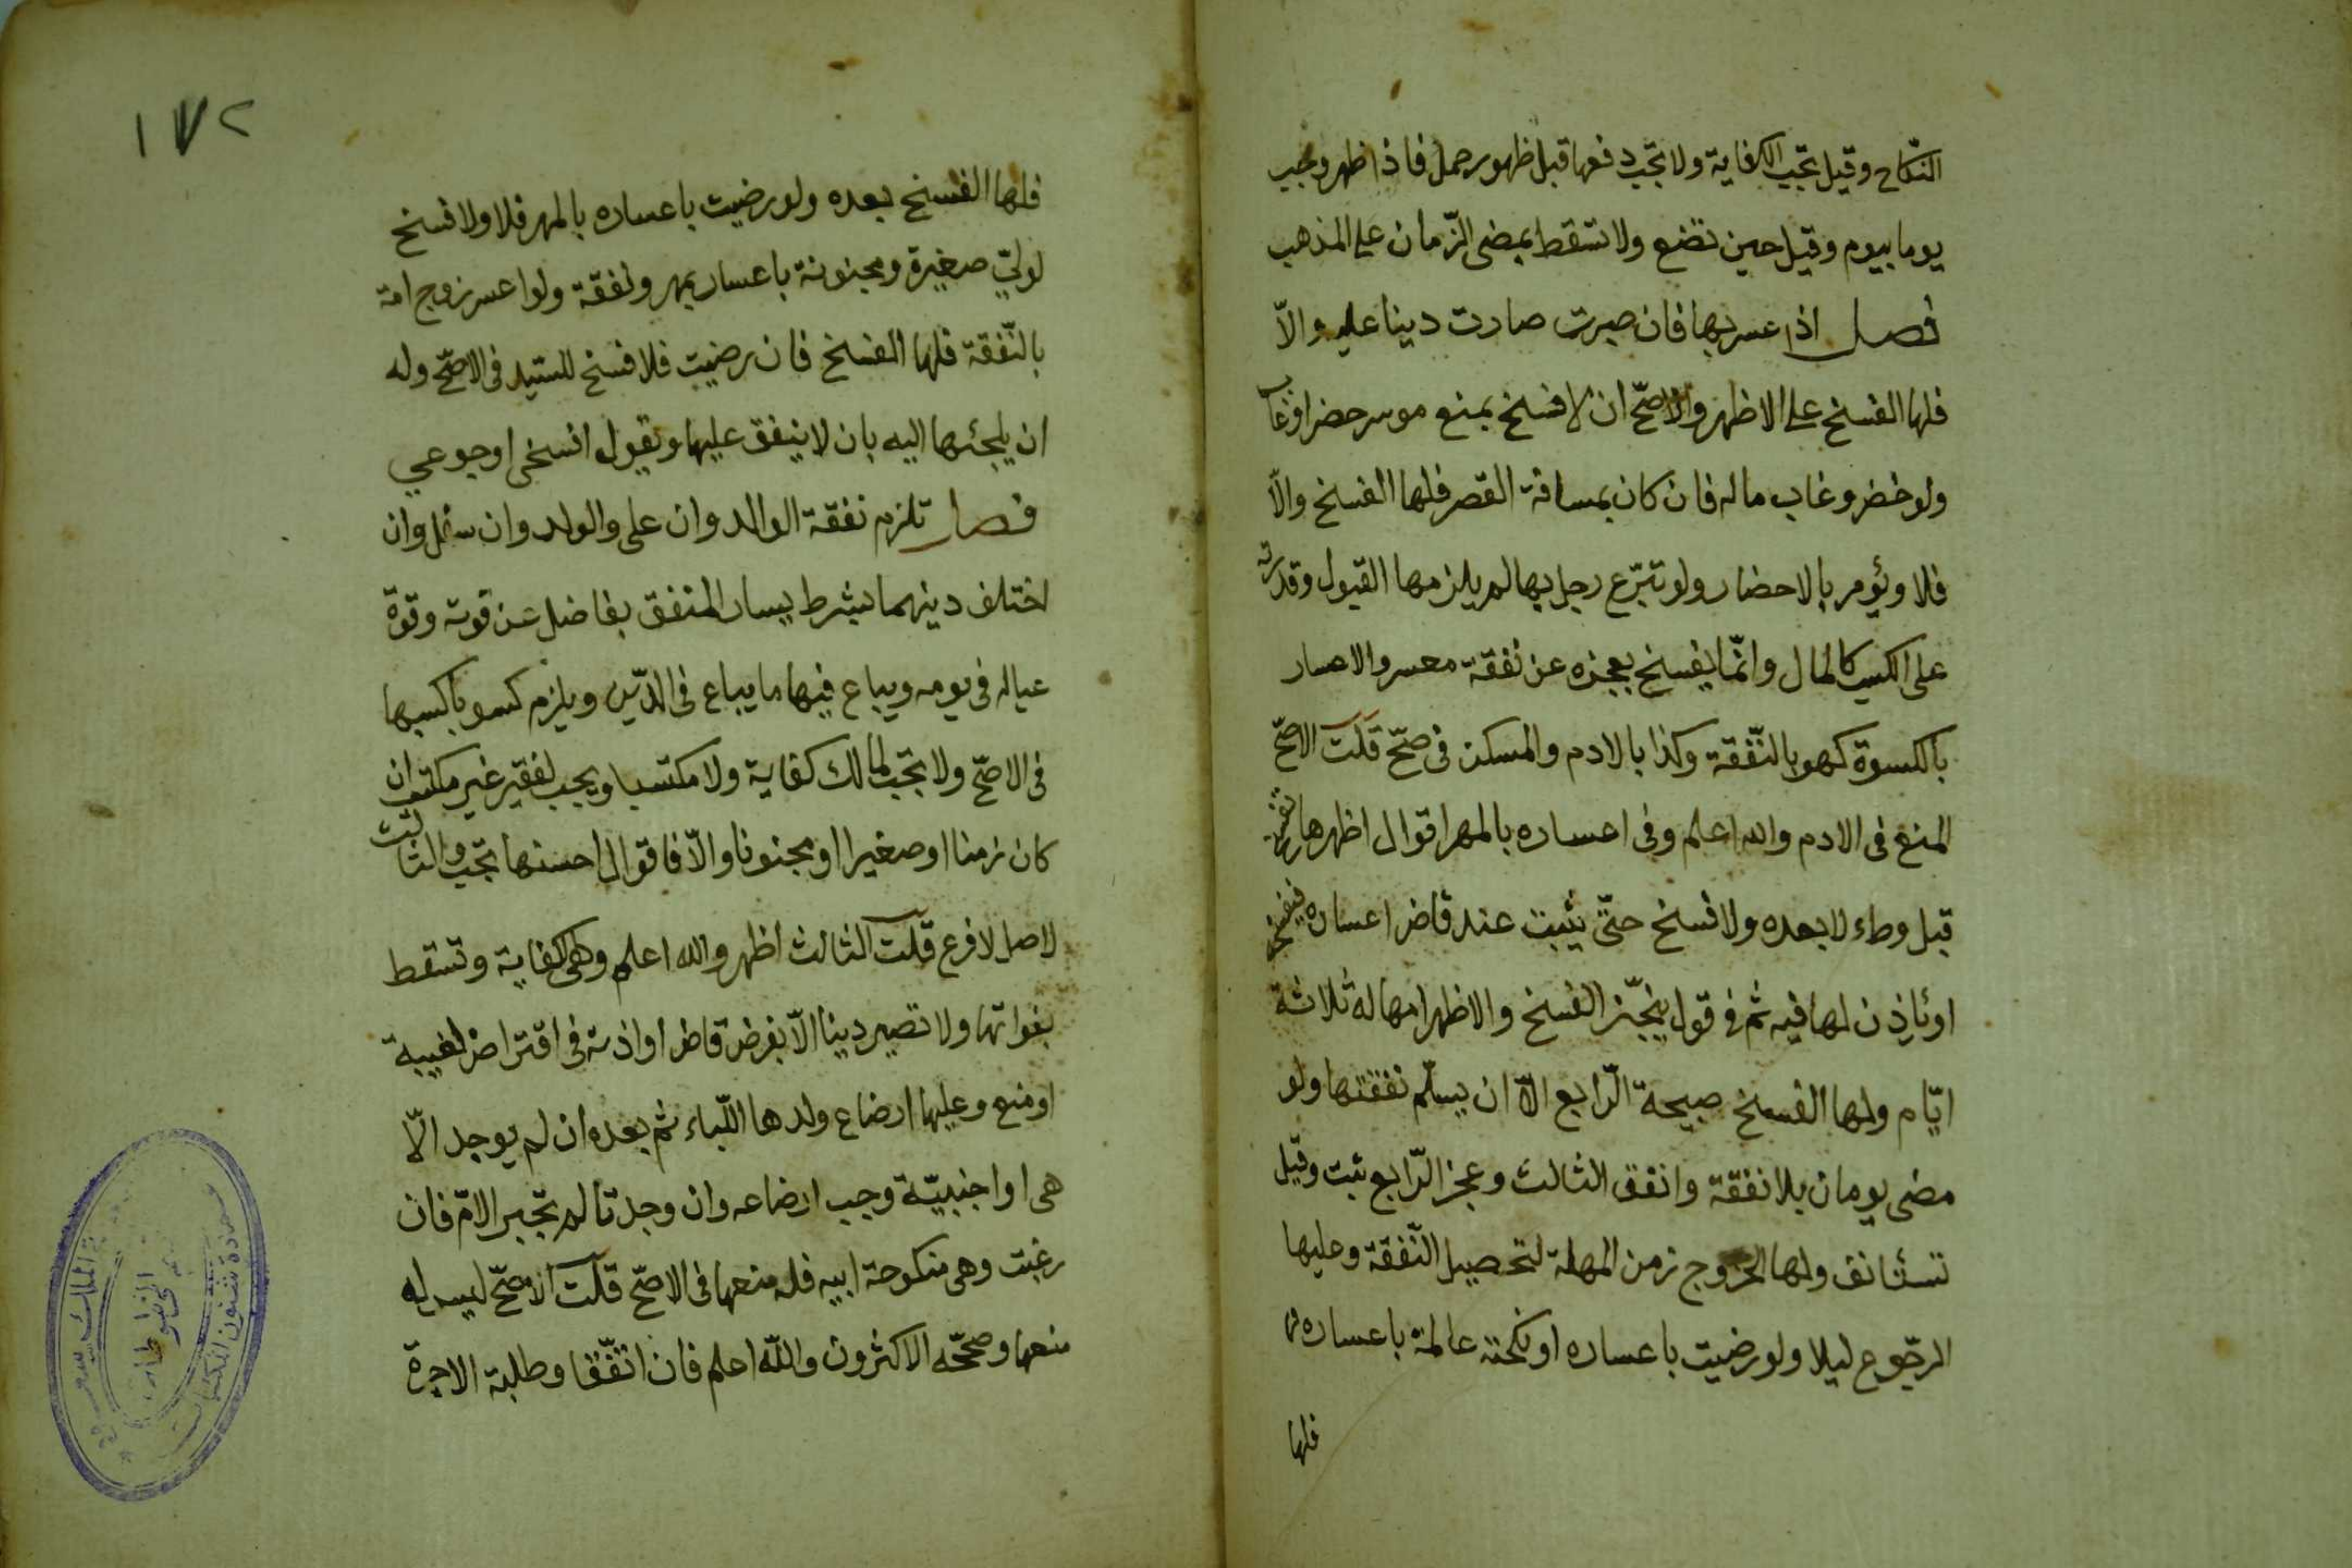 النكاح وقيل تجب الكفاية ولا تجب دفعها قبل ظهور حمل فاذا ظهر وجب
يوما بيوم وقيل حين تضع ولا تسقط بمضى الزّمان على المذهب
فصل اذا عسر بها فان صبرت صارت دينا عليه والاّ
فلها الفسخ على الاظهر والاصحّ ان لا فسخ بمنع موسر حضر او غاب
ولو حضر وغاب ماله فان كان بمسافة القصر فلها الفسخ والاّ
فلا ويؤمر بالاحضار ولو تبرّع رجل بها لم يلزمها القبول وقدرته
على الكسب كالمال وانّما يفسخ بعجزه عن نفقة معسر والاعسار
بالكسوة كهو بالنّفقة وكذا بالادم والمسكن فى صحّ قلت الاصحّ
المنع فى الادم والله اعلم وفى اعساره بالمهر اقوال اظهرها تفسخ
قبل وطء لا بعده ولا فسخ حتّى يثبت عند قاض اعساره فيفسخه
او يأذن لها فيه ثم فى قول ينجّز الفسخ والاظهر امهاله ثلاثة
ايّام ولها الفسخ صبيحة الرّابع الاّ ان يسلّم نفقتها ولو
مضى يومان بلا نفقة وانفق الثالث وعجز الرّابع بنت وقيل
تستانف ولها الخروج زمن المهلة لتحصيل النّفقة وعليها
الرّجوع ليلا ولو رضيت باعساره او نكحته عالمة باعساره
فلها
١٧٢
فلها الفسخ بعده ولو رضيت باعساره بالمهر فلا ولا فسخ
لوليّ صغيرة ومجنونة باعسار بمهر ونفقة ولو اعسر زوج امة
بالنّفقة فلها الفسخ فان رضيت فلا فسخ للسّيد فى الاصحّ وله
ان يلجئها اليه بان لا ينفق عليها ويقول افسخى او جوعي
فصل تلزم نفقة الوالد وان على والولد وان سفل وان
اختلف دينهما بشرط يسار المنفق بفاضل عن قوته وقوة
عياله فى يومه ويباع فيها ما يباع فى الدّين ويلزم كسوبا كسبها
فى الاصحّ ولا تجب لمالك كفاية ولا مكتسبا ويجب لفقير غير مكتسب ان
كان زمنا او صغيرا او مجنونا والاّ فاقوال احسنها تجب والثالث
لاصل لا فرع قلت الثالث اظهر والله اعلم وهى الكفاية وتسقط
بفواتها ولا تصير دينا الاّ بفرض قاض او اذنه فى اقتراض لغيبة
او منع وعليها ارضاع ولدها اللّباء ثم بعده ان لم يوجد الاّ
هى او اجنبيّة وجب ارضاعه وان وجدتا لم تجبر الامّ فان
رغبت وهى منكوحة ابيه فله منعها فى الاصحّ قلت الاصحّ ليس له
منعها وصحّحه الاكثرون واللّه اعلم فان اتّفقا وطلبة الاجرة